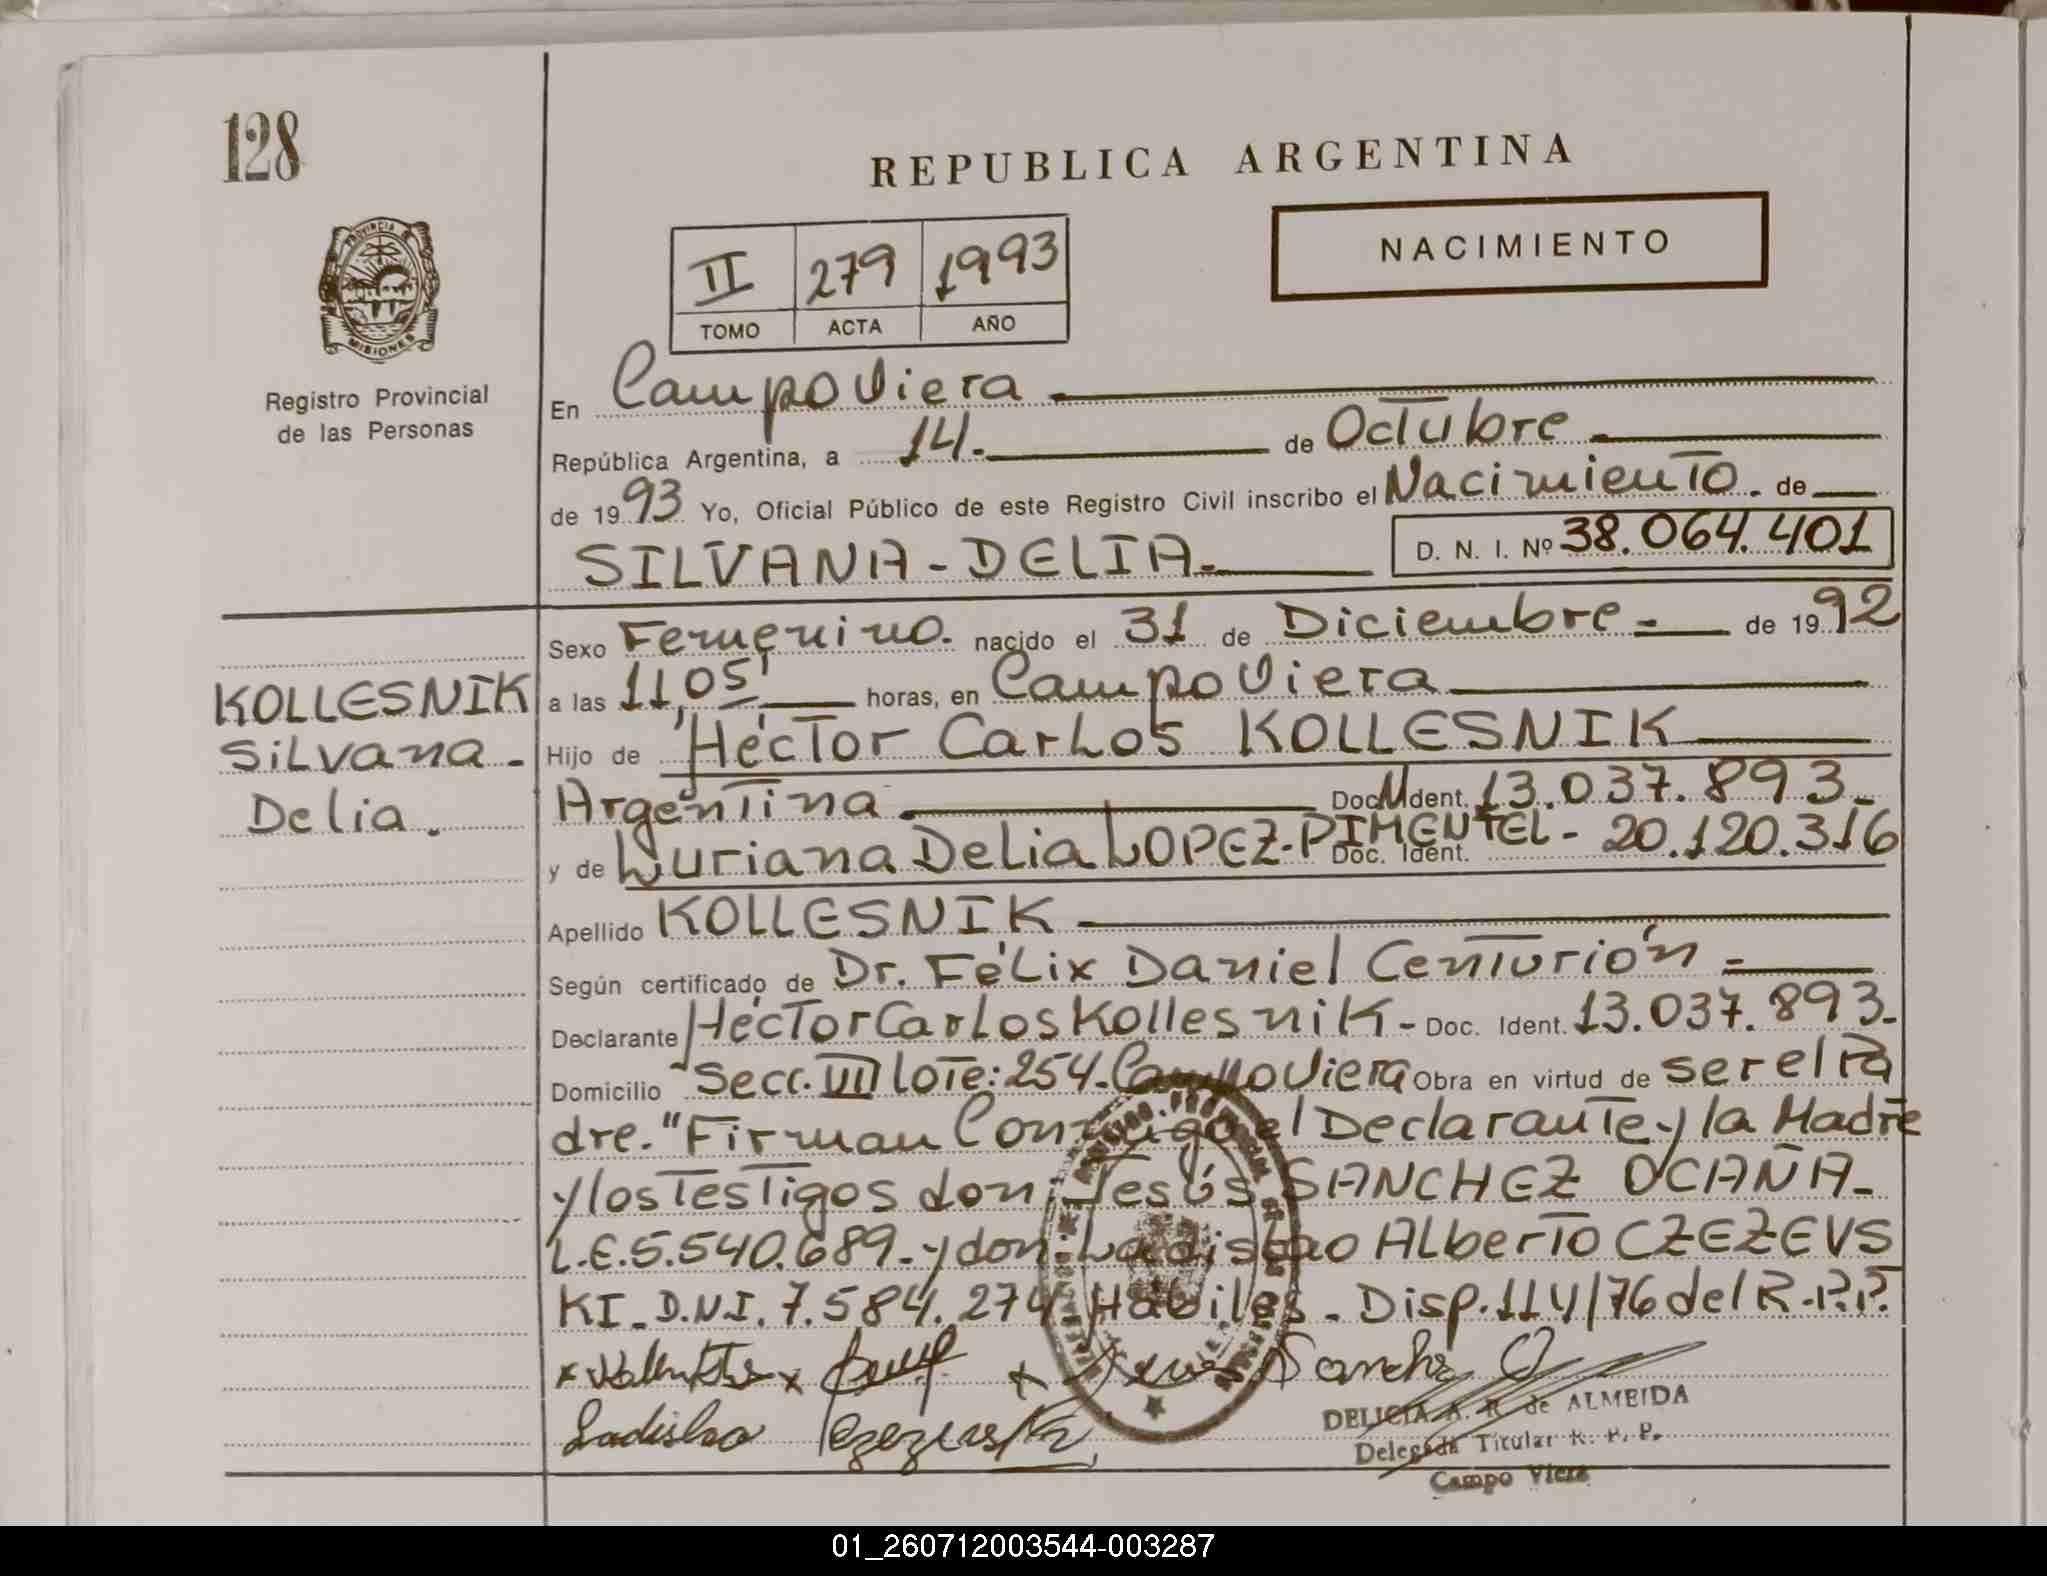 128
REPUBLICA ARGENTINA
NACIMIENTO
II 279 1993
TOMO ACTA AÑO
PROVINCIA DE
MISIONES
Registro Provincial
de las Personas
En Campo Viera
República Argentina, a 14. de Octubre
de 1993 Yo, Oficial Público de este Registro Civil inscribo el Nacimiento. de
SILVANA-DELIA. D. N. I. Nº 38.064.401
Sexo Femenino. nacido el 31 de Diciembre de 1992
a las 11,05' horas, en Campo Viera
KOLLESNIK
Silvana -
Delia.
Hijo de Héctor Carlos KOLLESNIK
Argentina Doc. Ident. 13.037.893.
y de Luriana Delia LOPEZ-PIMENTEL- Doc. Ident. 20.120.316
Apellido KOLLESNIK
Según certificado de Dr. Félix Daniel Centurión
Declarante Héctor Carlos Kollesnik- Doc. Ident. 13.037.893-
Domicilio Secc. VII Lote: 254. Campo Viera Obra en virtud de ser el Pa
dre. "Firman Conmigo el Declarante y la Madre
y los Testigos don: Jesús SANCHEZ OCAÑA-
L.E. 5.540.689- y don: Ladislao Alberto CZEZEVS
KI- D.N.I. 7.584.274 Hábiles - Disp. 114/76 del R.P.P.
x x x Jesus Sanche O
Ladislao
DELICIA A. R. de ALMEIDA
Delegada Titular R. P. P.
Campo Viera
01_260712003544-003287